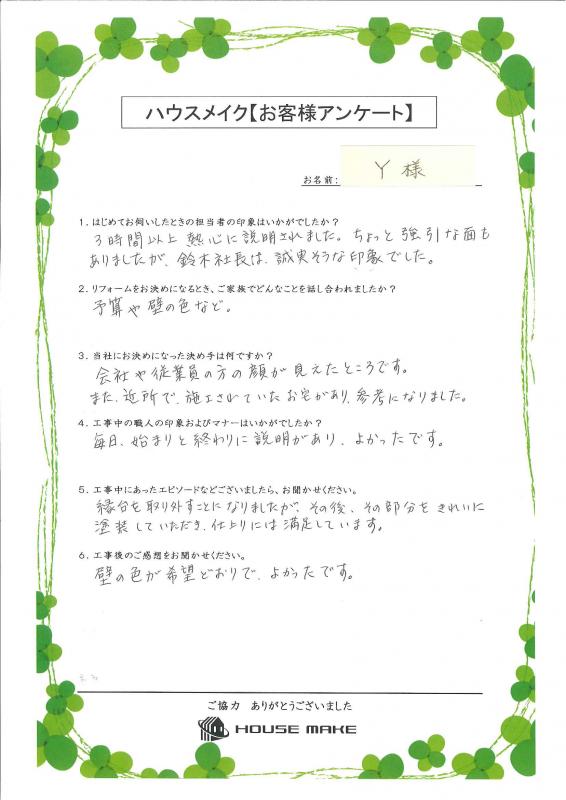 ハウスメイク【お客様アンケート】
お名前: Y 様
1．はじめてお伺いしたときの担当者の印象はいかがでしたか？
3時間以上 熱心に説明されました。ちょっと強引な面も
ありましたが、鈴木社長は、誠実そうな印象でした。
2．リフォームをお決めになるとき、ご家族でどんなことを話し合われましたか？
予算や壁の色など。
3．当社にお決めになった決め手は何ですか？
会社や従業員の方の顔が見えたところです。
また、近所で、施工されていたお宅があり、参考になりました。
4．工事中の職人の印象およびマナーはいかがでしたか？
毎日、始まりと終わりに説明があり、よかったです。
5．工事中にあったエピソードなどございましたら、お聞かせください。
縁台を取り外すことになりましたが、その後、その部分をきれいに
塗装していただき、仕上りには満足しています。
6．工事後のご感想をお聞かせください。
壁の色が希望どおりで、よかったです。
ご協力 ありがとうございました
HOUSE MAKE